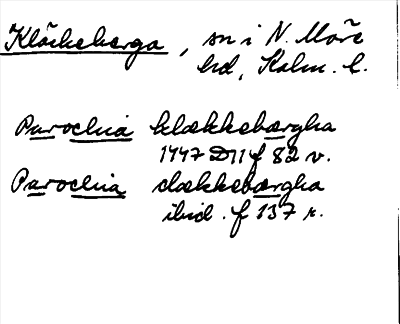 Kläckeberga, sn i N. Möre
hd, Kalm. l.
Parochia klækkebærgha
1447 D11 f 82 v.
Parochia clækkebærgha
ibid. f 137 r.